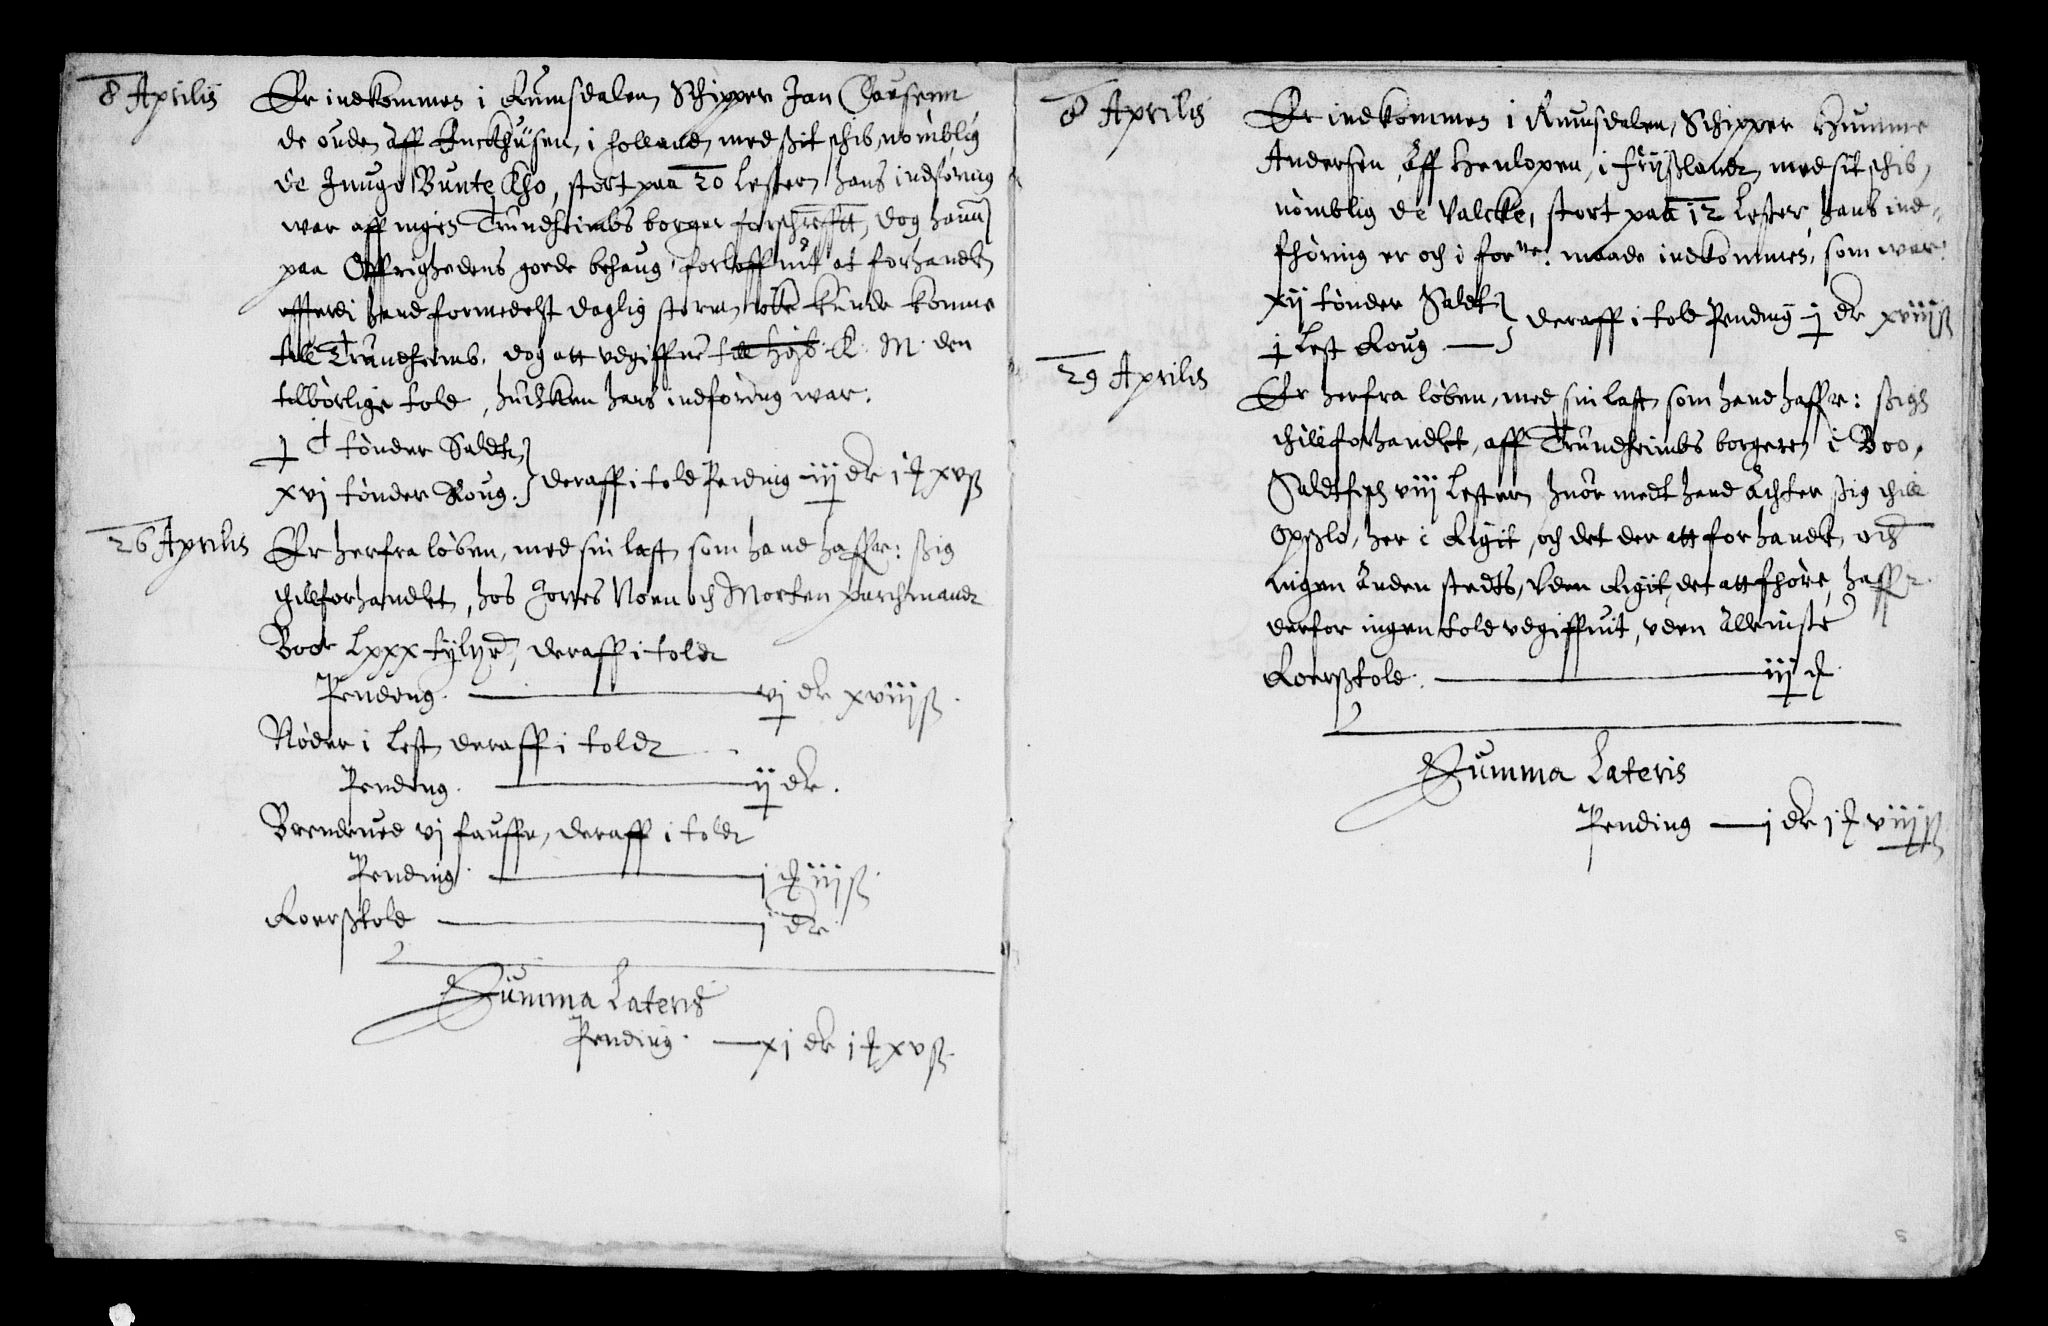 8 Aprilis
Er indkommen i Rumsdalen, Schipper Jan Clausenn
de oude, aff Enckhusen, i Holland, med sit schib, nømblig
de Junge Bunte Kho, stort paa 20 Lester, hans indføring
war aff ingen Trundheimbs borger forschrefft, dog hannd
paa Øffrighedens goede behaug, forloffuit at forhandle
efftterdi hand formedelst daglig storm, icke kunde komme
till Trundheimb. dog att vdgiffue till Højb. K. M. den
tilbørlige told, huilcken hans indføring war.
j C tønder Saldt
xvj tønder Roug.
deraff i told Pending iij dr 1 ß xvß
26 Aprilis
Er herfra løben, med sin last, som hand haffr: ßig
thillforhandlet, hos Jores Noen och Morten Parchmandt
Boer Lxxx tylt, deraff i toldt
Pending. — vj dr xviijß.
Røder i Lest, deraff i toldt
Pending. — ij dr.
Brendeued vj fauffn, deraff i toldt
Pending. — j iiijß.
Roerßtold — j dr
Summa Lateris
Pending. — xj dr 1 xvß.
8 Aprilis
Er indkommen i Rumsdalen, Schipper Humme
Andersen, aff Henlopen, i Frysßlandt, med sit schib,
nømblig de Valcke, stort paa 12 Lester, hans ind-
fhøring er och i forne. maade indkommen, som war:
xij tønder Saldt
j Lest Roug. —
deraff i told Pending ij dr xviijß
29 Aprilis
Er herfra løben, med sin last, som hand haffr: ßigh
thillforhandlet, aff Trundheimbs borgere, i Boo,
Saldtfisch viij Lester, huor medt hand achter ßig thill
Opßlo, her i Rigit, och det der att forhandle, och
ingen anden stedts, vden Rigit, det att fhøre, haffr.
derfor ingen told vdgiffuit, vden alleiniste
Roerßtold. — iij
Summa Lateris
Pending — j dr 1 viijß